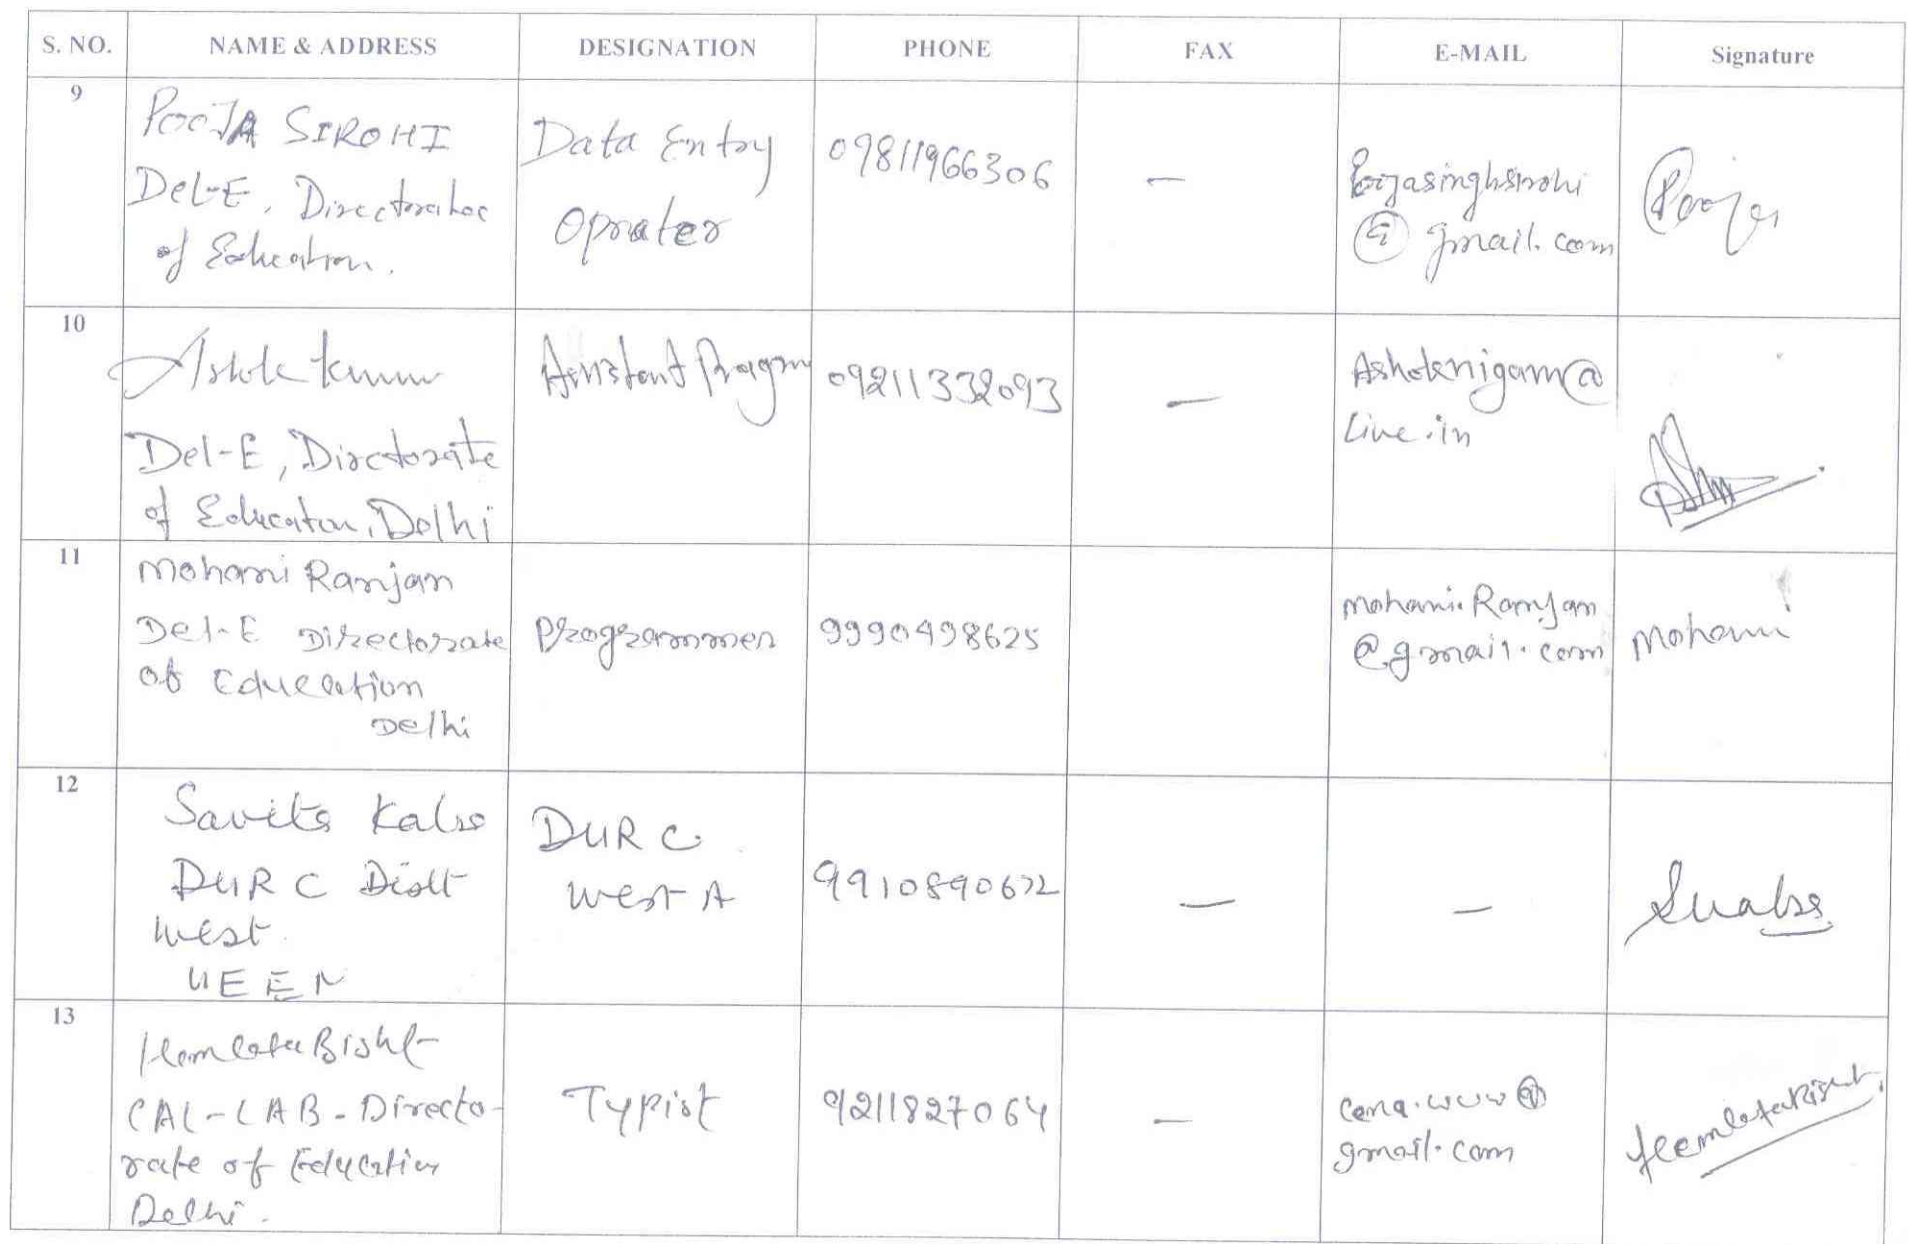 S. NO. NAME & ADDRESS DESIGNATION PHONE FAX E-MAIL Signature
9
POOJA SIROHI
Del-E, Directorates
of Education.
Data Entry
Oprater
09811966306
—
Poojasinghsirohi
@ gmail.com
Pooja
10
Ashok Kumar
Del-E, Dirctorate
of Education, Delhi
Assistant Progrm
09211332093
—
Ashoknigam@
Live.in
11
Mohani Ranjan
Del-E Directorate
of Education
Delhi
Programmer
9990498625
mohani.Ranjan
@gmail.com
Mohani
12
Savita
DURC Distt
West
UEEN
DURC
West A
9910890672
—
—
13
Hemlata Bisht
CAL-LAB-Directo-
rate of Education
Delhi.
Typist
9211827064
—
gmail.com
Hemlata Bisht